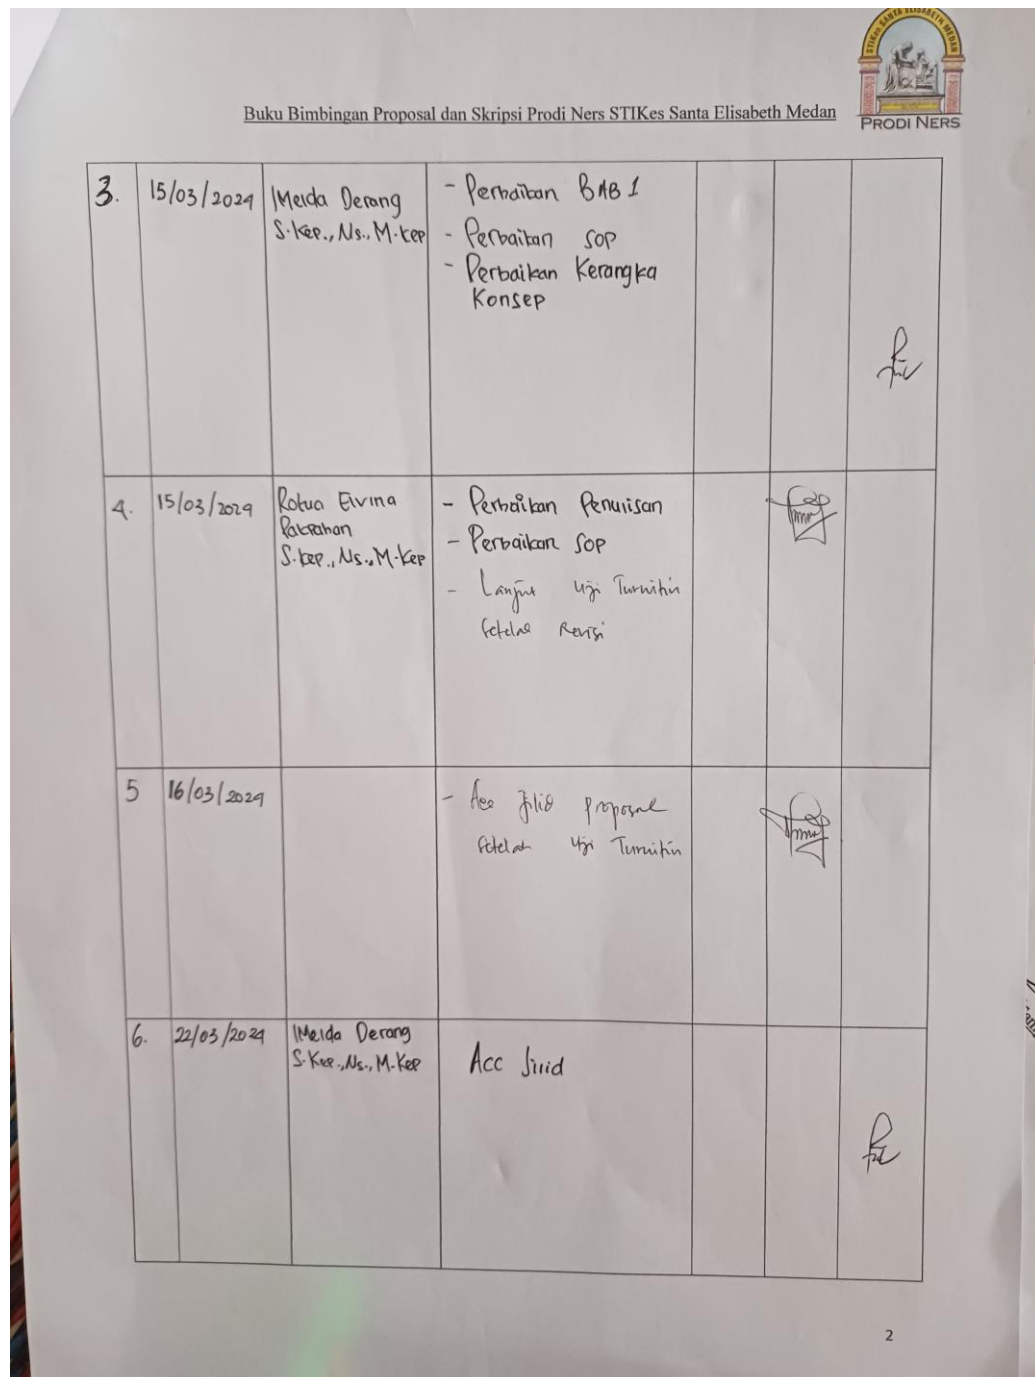 STIKes SANTA ELISABETH MEDAN
PRODI NERS
Buku Bimbingan Proposal dan Skripsi Prodi Ners STIKes Santa Elisabeth Medan
3. 15/03/2024 Imelda Derang - Perbaikan BAB 1
S.Kep., Ns., M.Kep - Perbaikan SOP
- Perbaikan Kerangka
Konsep
4. 15/03/2024 Rotua Elvina - Perbaikan Penulisan
Pakpahan - Perbaikan SOP
S.Kep., Ns., M.Kep
- Lanjut Uji Turnitin
Setelah Revisi
5 16/03/2024 - Acc Jilid proposal
Setelah Uji Turnitin
6. 22/03/2024 Imelda Derang
S.Kep., Ns., M.Kep Acc Jilid
2